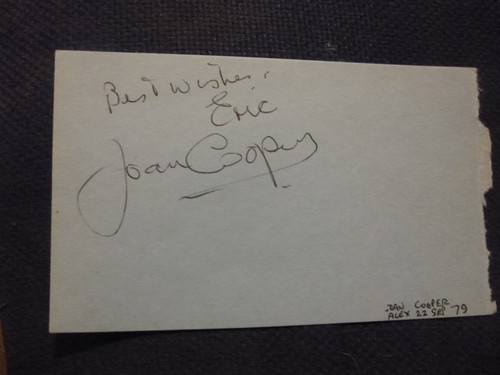 Best Wishes,
Eric
Joan Cooper
JOAN COOPER
ALEX 22 SEP 79